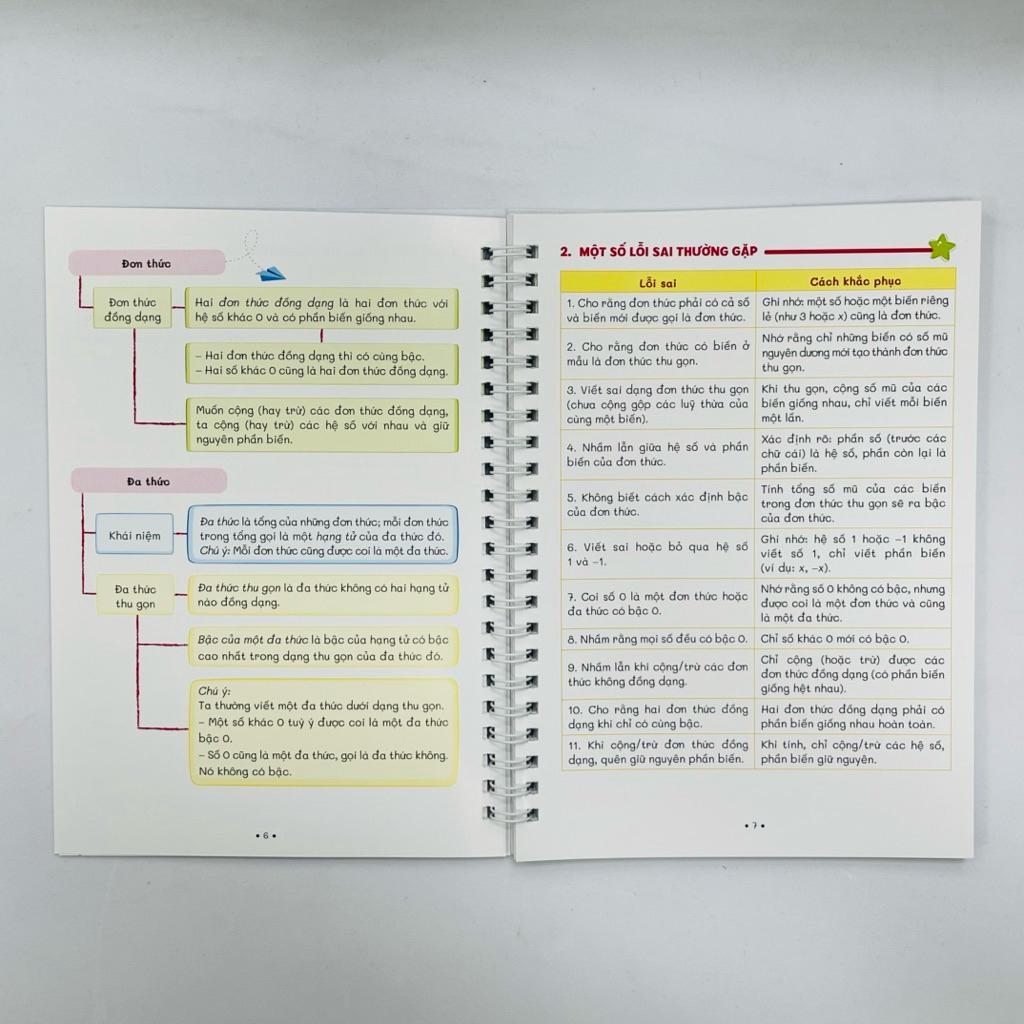 Đơn thức
Đơn thức
đồng dạng
Hai đơn thức đồng dạng là hai đơn thức với
hệ số khác 0 và có phần biến giống nhau.
– Hai đơn thức đồng dạng thì có cùng bậc.
– Hai số khác 0 cũng là hai đơn thức đồng dạng.
Muốn cộng (hay trừ) các đơn thức đồng dạng,
ta cộng (hay trừ) các hệ số với nhau và giữ
nguyên phần biến.
Đa thức
Khái niệm
Đa thức là tổng của những đơn thức; mỗi đơn thức
trong tổng gọi là một hạng tử của đa thức đó.
Chú ý: Mỗi đơn thức cũng được coi là một đa thức.
Đa thức
thu gọn
Đa thức thu gọn là đa thức không có hai hạng tử
nào đồng dạng.
Bậc của một đa thức là bậc của hạng tử có bậc
cao nhất trong dạng thu gọn của đa thức đó.
Chú ý:
Ta thường viết một đa thức dưới dạng thu gọn.
– Một số khác 0 tuỳ ý được coi là một đa thức
bậc 0.
– Số 0 cũng là một đa thức, gọi là đa thức không.
Nó không có bậc.
• 6 •
2. MỘT SỐ LỖI SAI THƯỜNG GẶP
Lỗi sai
Cách khắc phục
1. Cho rằng đơn thức phải có cả số
và biến mới được gọi là đơn thức.
Ghi nhớ: một số hoặc một biến riêng
lẻ (như 3 hoặc x) cũng là đơn thức.
2. Cho rằng đơn thức có biến ở
mẫu là đơn thức thu gọn.
Nhớ rằng chỉ những biến có số mũ
nguyên dương mới tạo thành đơn thức
thu gọn.
3. Viết sai dạng đơn thức thu gọn
(chưa cộng gộp các luỹ thừa của
cùng một biến).
Khi thu gọn, cộng số mũ của các
biến giống nhau, chỉ viết mỗi biến
một lần.
4. Nhầm lẫn giữa hệ số và phần
biến của đơn thức.
Xác định rõ: phần số (trước các
chữ cái) là hệ số, phần còn lại là
phần biến.
5. Không biết cách xác định bậc
của đơn thức.
Tính tổng số mũ của các biến
trong đơn thức thu gọn sẽ ra bậc
của đơn thức.
6. Viết sai hoặc bỏ qua hệ số
1 và –1.
Ghi nhớ: hệ số 1 hoặc –1 không
viết số 1, chỉ viết phần biến
(ví dụ: x, –x).
7. Coi số 0 là một đơn thức hoặc
đa thức có bậc 0.
Nhớ rằng số 0 không có bậc, nhưng
được coi là một đơn thức và cũng
là một đa thức.
8. Nhầm rằng mọi số đều có bậc 0.
Chỉ số khác 0 mới có bậc 0.
9. Nhầm lẫn khi cộng/trừ các đơn
thức không đồng dạng.
Chỉ cộng (hoặc trừ) được các
đơn thức đồng dạng (có phần biến
giống hệt nhau).
10. Cho rằng hai đơn thức đồng
dạng khi chỉ có cùng bậc.
Hai đơn thức đồng dạng phải có
phần biến giống nhau hoàn toàn.
11. Khi cộng/trừ đơn thức đồng
dạng, quên giữ nguyên phần biến.
Khi tính, chỉ cộng/trừ các hệ số,
phần biến giữ nguyên.
• 7 •